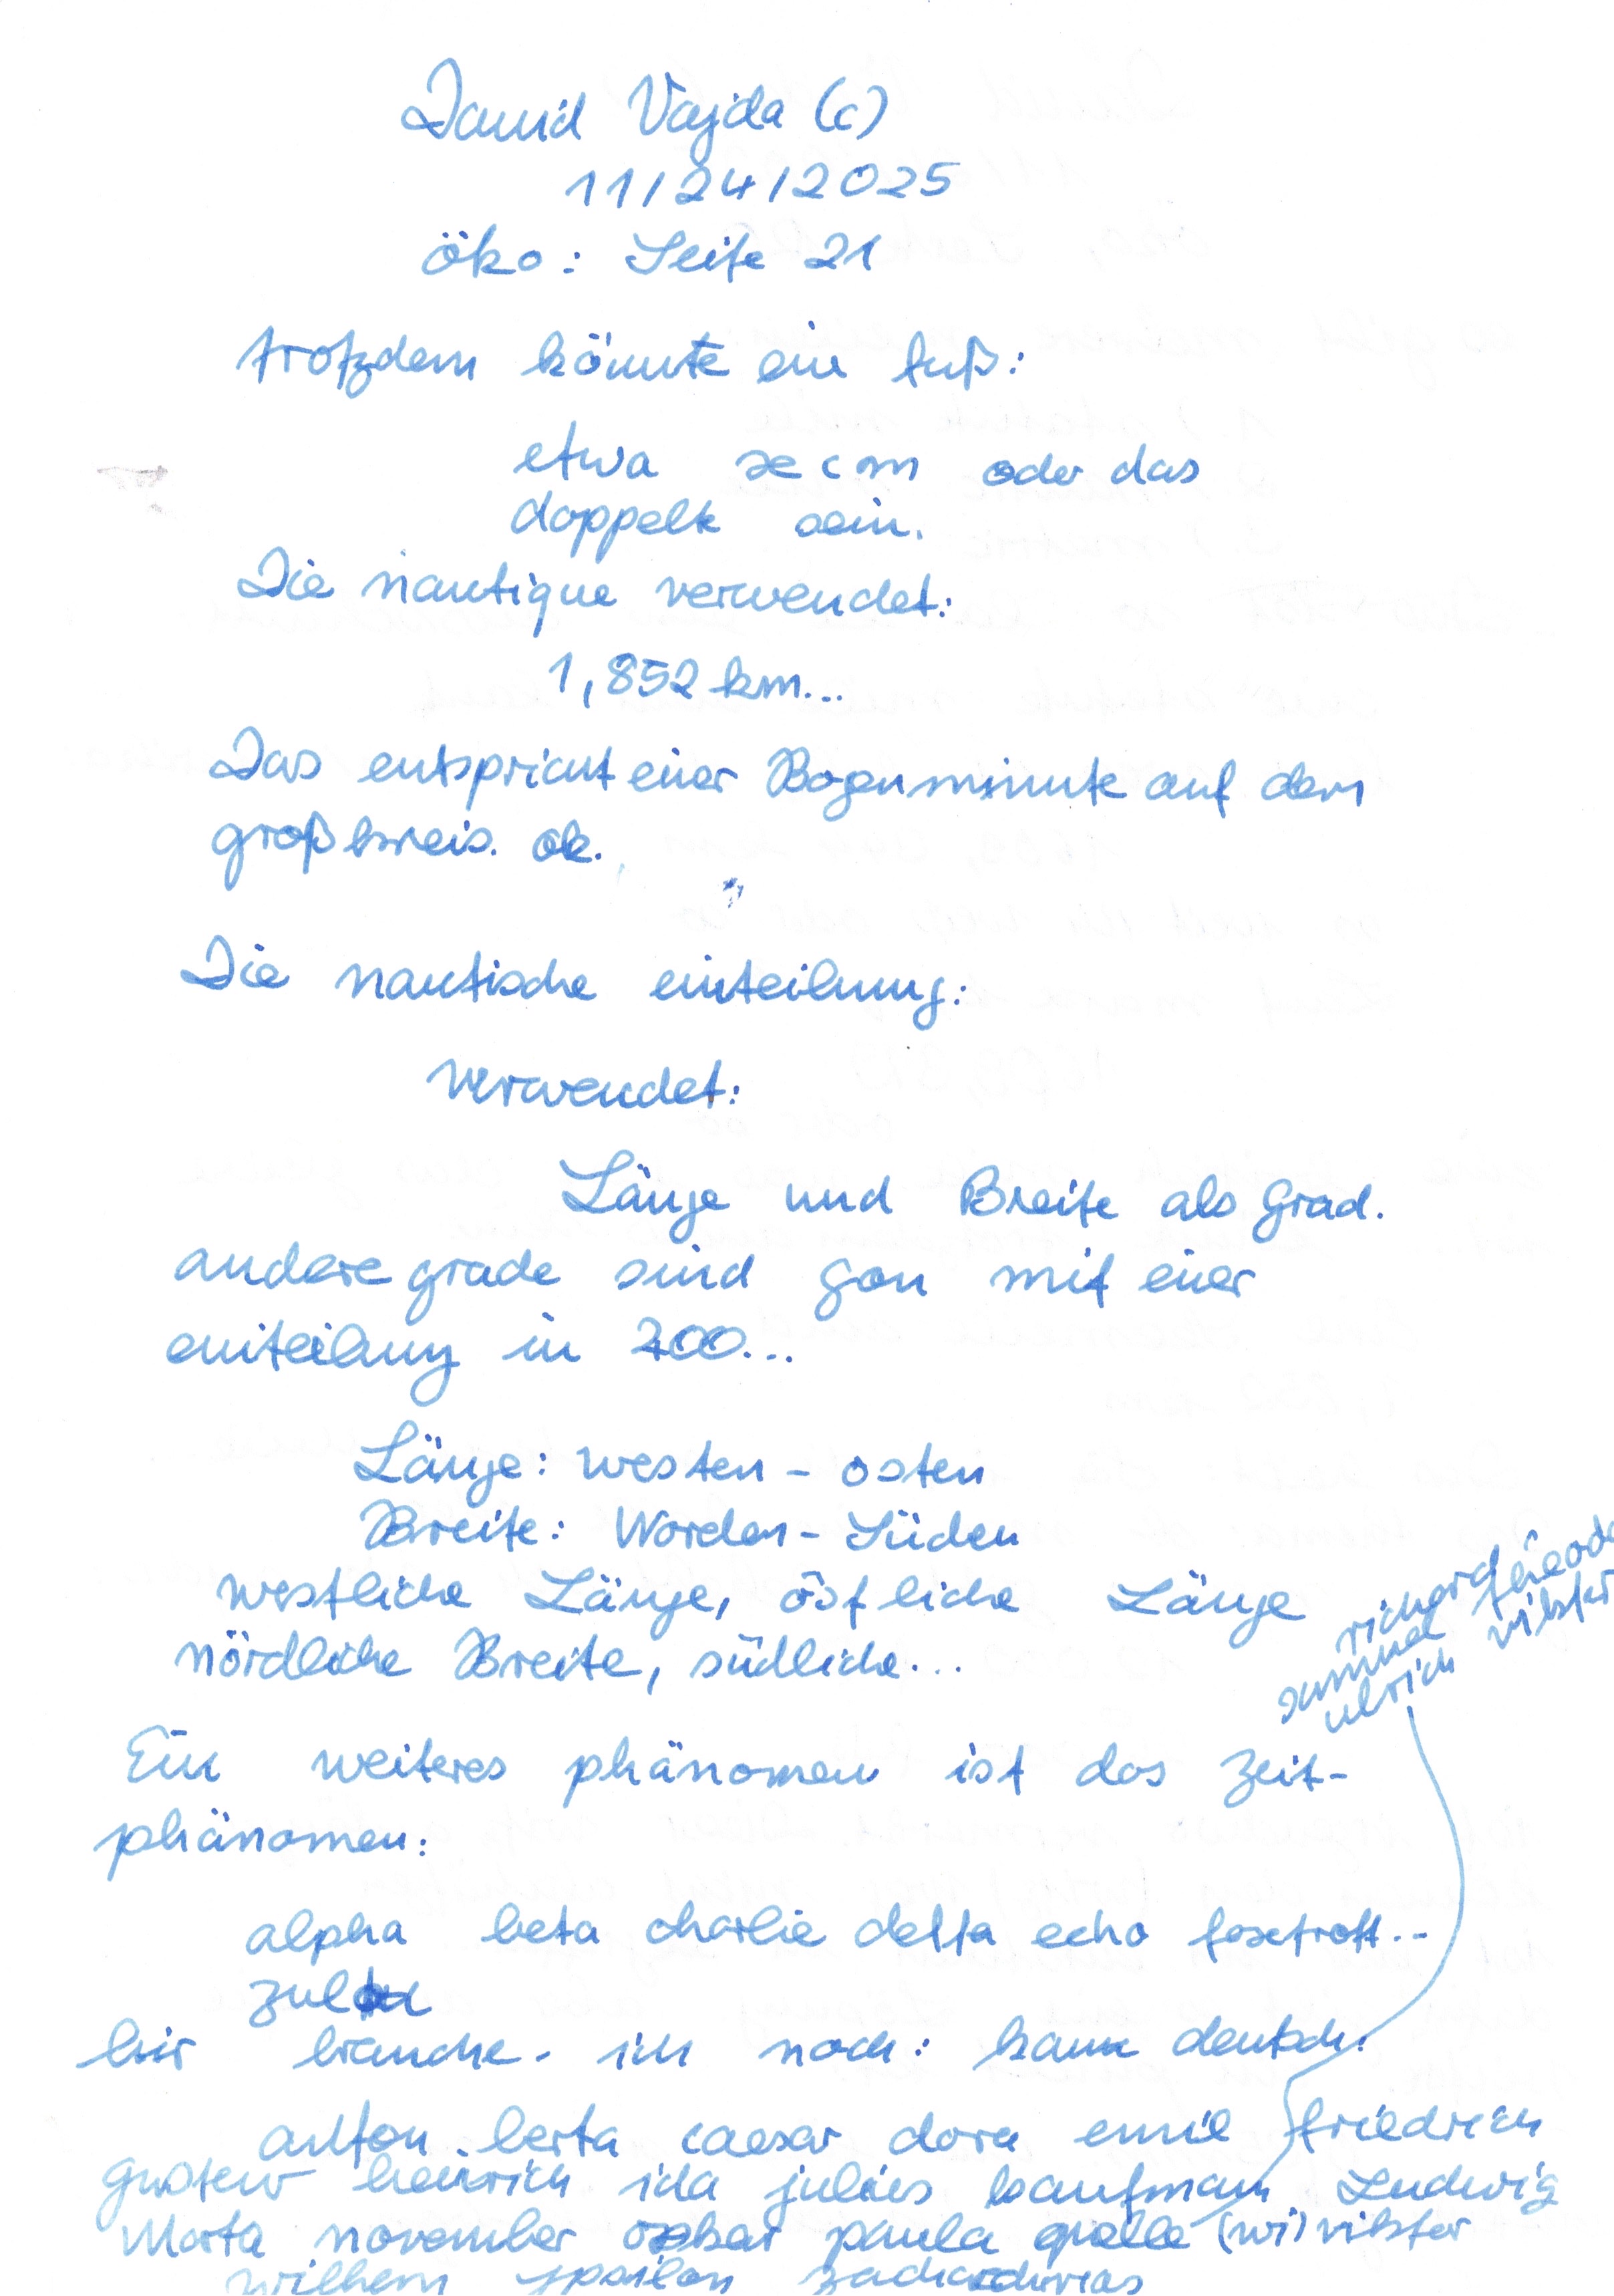 David Vajda (c)
11/24/2025
öko: Seite 21
trotzdem könnte ein fuß:
etwa x cm oder das
doppelte sein.
Die nautique verwendet:
1,852 km...
Das entspricht einer Bogenminute auf dem
großkreis. ok.
Die nautische einteilung:
verwendet:
Länge und Breite als Grad.
andere grade sind gon mit einer
einteilung in 200...
Länge: westen - osten
Breite: Norden - Süden
westliche Länge, östliche Länge
nördliche Breite, südliche...
richard
samuel
ulrich viktor
Ein weiteres phänomen ist das Zeit-
phänomen:
alpha beta charlie delta echo foxtrott...
zulu
hier brauche ich noch: kann deutsch:
anton berta caesar dora emil friedrich
gustav heinrich ida julius kaufmann Ludwig
Marta november oskar paula quelle (wi) viktor
wilhem ypsilon zacharias